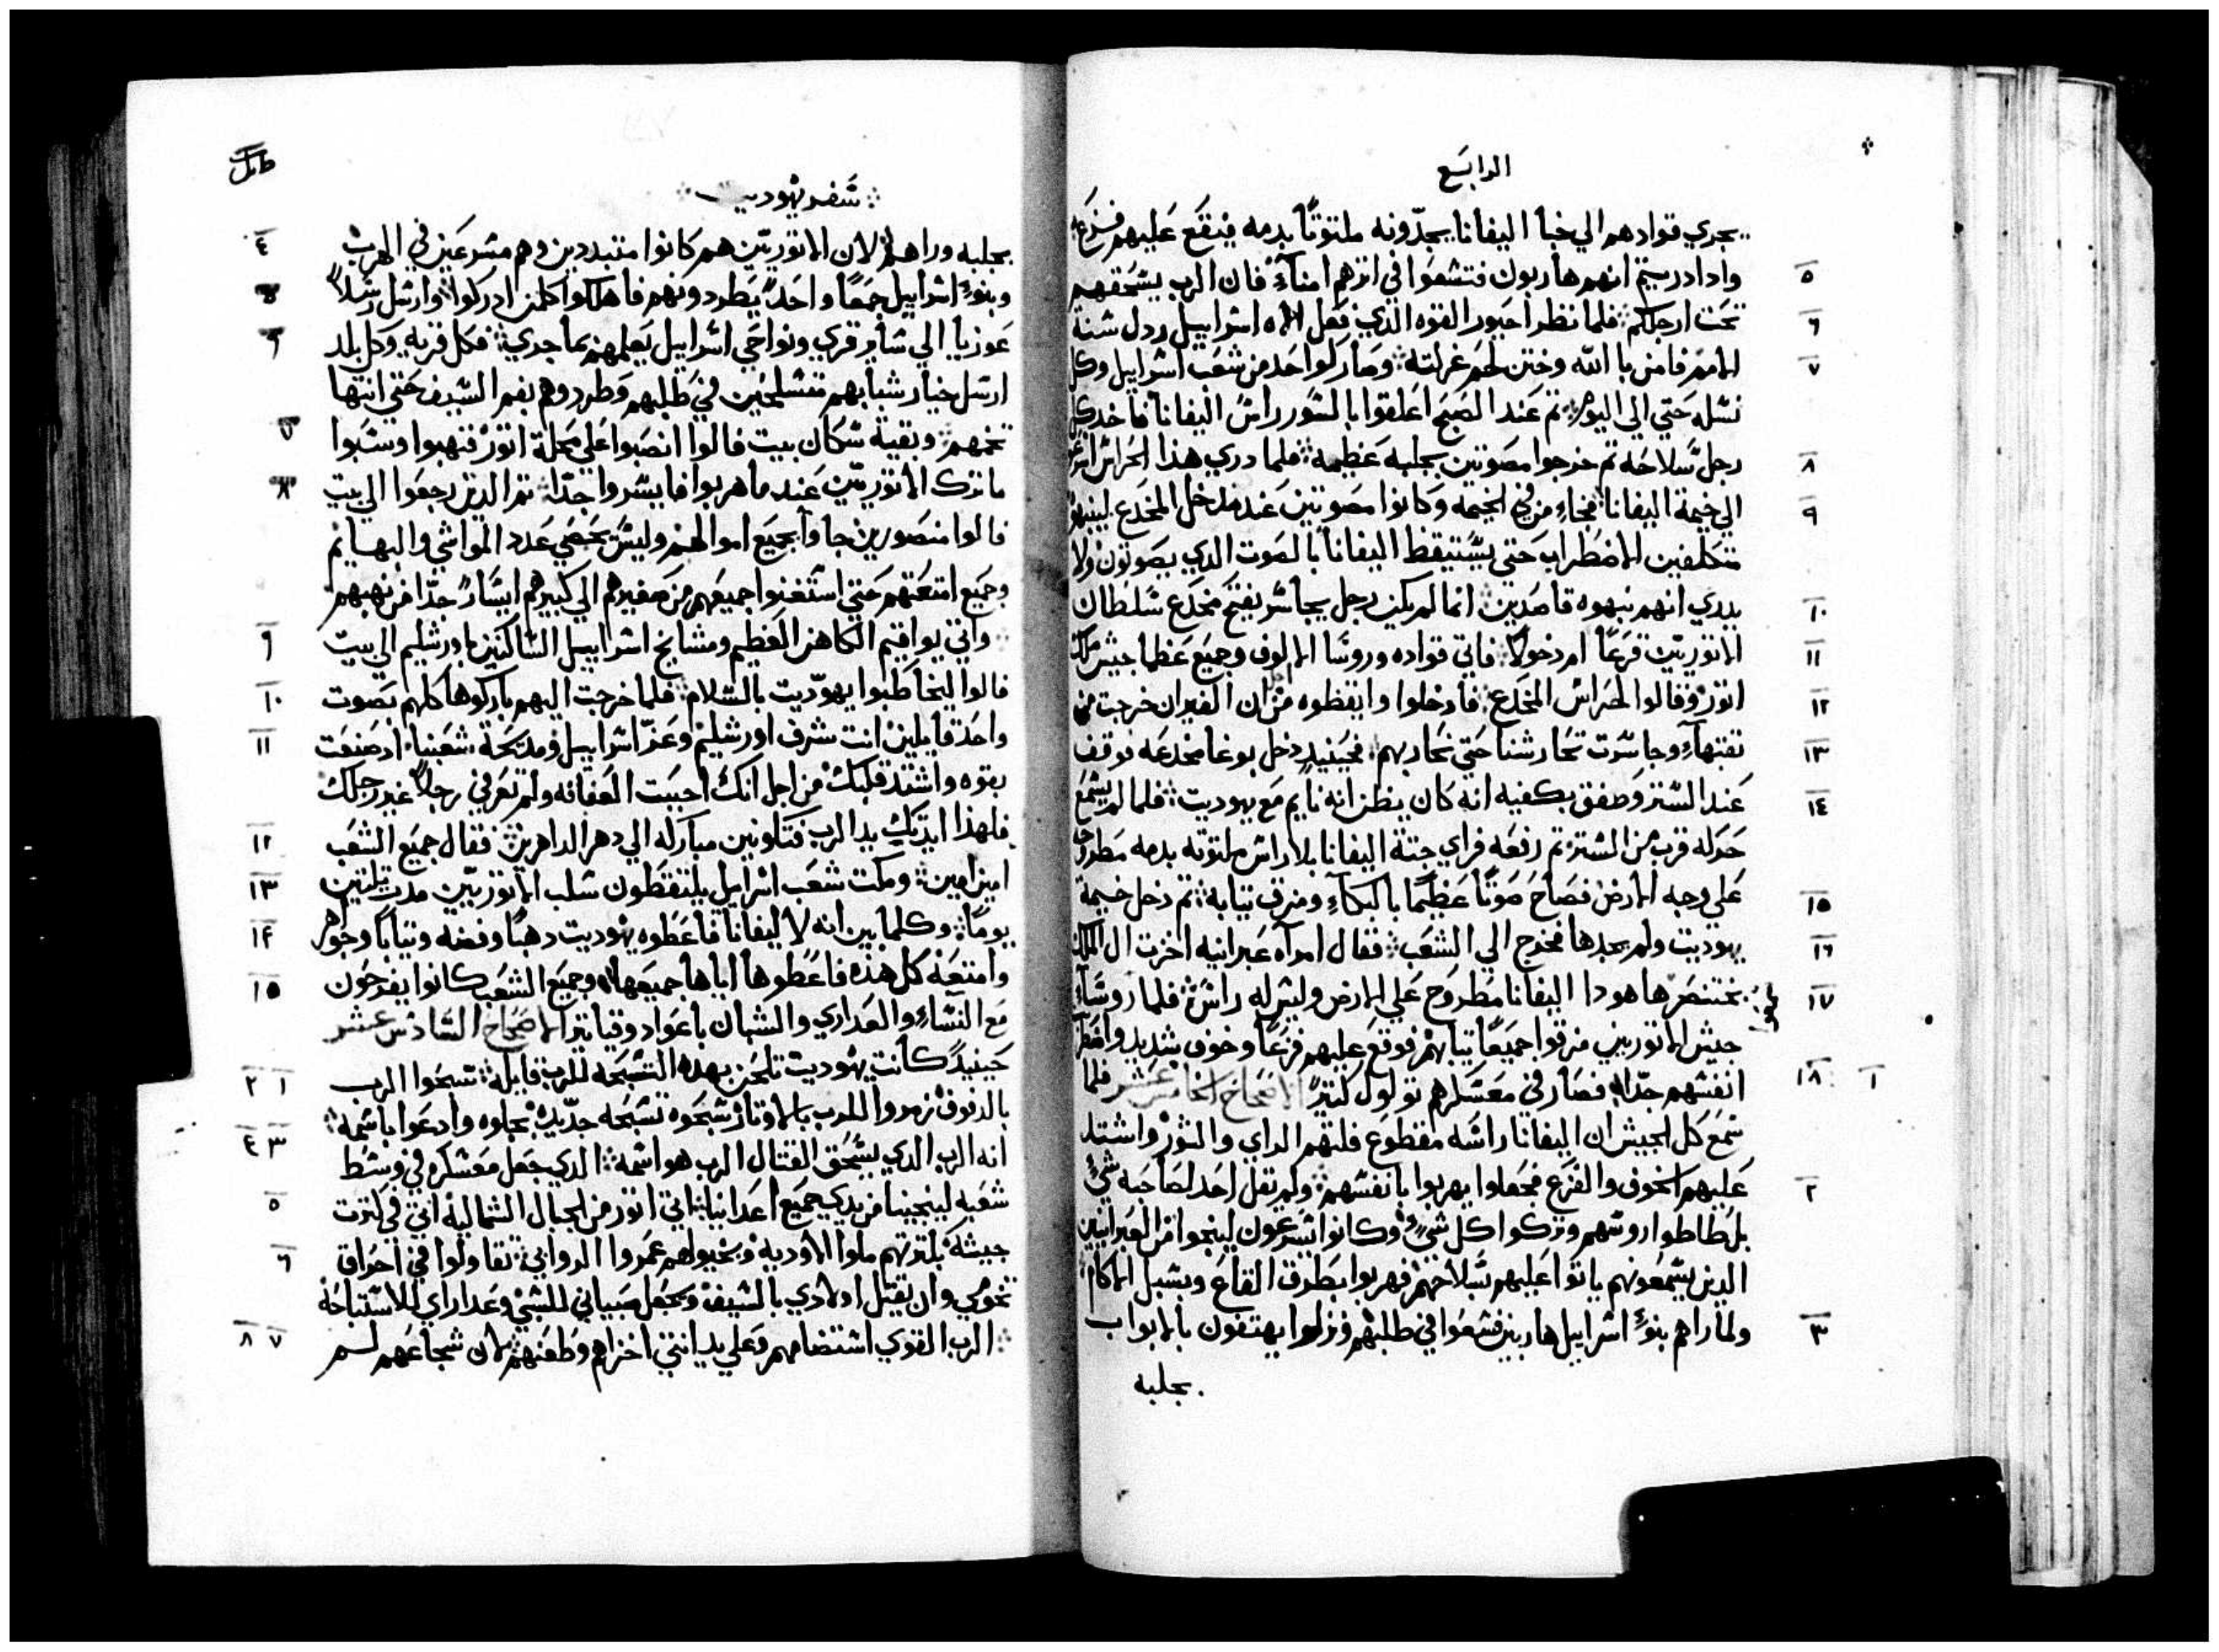 الرابع
يجري قوادهم الي خبأ اليفانا يجدّونه ملتوتًا بدمه فيقع عليهم فزع
٥ وادا دريتم انهم هاربون فتشعوا في اترهم امنآء فان الرب يسحقهم
٦ تحت ارجلكم فلما نظر احيور القوه الذي فعل الاه اسراييل ردل سنة
٧ الامم فامن با الله وختن لحم غرلته وصار كواحد من شعب اسراييل وكل
نسله حتي الي اليوم تم عند الصبح اعلقوا بالسور راس اليفانا فاخد كل
٨ رجل سلاحه تم خرجوا مصوتين بجلبه عظيمه فلما دري هذا الحراس
٩ الي خيمة اليفانا فجاء من في الخيمه وكانوا مصوتين عند مدخل المخدع لينبهوه
متكلفين الاضطراب حتي يستيقظ اليفانا بالصوت الدي يصوتون ولا
١٠ يدري انهم نبهوه قاصدين انما لم يكن رجل يجاسر يفتح مخدع سلطان
١١ الاتوريين قرعًا ام دخولا فاتي قواده وروسا الالوف وجميع عظما جيش ملك
١٢ اتور وقالوا لحراس المخدع فادخلوا وايقظوه من ان الفيران خرجت من
١٣ تقبتهآء وجاسرت تحارشنا حتي نحاربهم فحينيد دخل بوغا مخدعه فوقف
١٤ عند الستر وصفق بكفيه انه كان يظن انه نايم مع يهوديت فلما لم يسمع
حركه قرب من الستر تم رفعه فراي جتة اليفانا بلا راس ملتوته بدمه مطروح
١٥ علي وجه الارض فصاح صوتًا عظيمًا بالبكآء ومزق تيابه تم دخل خيمة
١٦ يهوديت ولم يجدها فخرج الي الشعب فقال امرآه عبرانيه اخزت ال الملك
١٧ بختنصر ها هودا اليفانا مطروح علي الارض وليس له راس فلما روسآء
جيش الاتوريين مزقوا جميعًا تيابهم فوقع عليهم فزعًا وخوف شديد واضطرب
١٨ انفسهم جدّا فصار في معسكرهم تولول كتيرًا الاصحاح الخامس عشر ١ فلما
سمع كل الجيش ان اليفانا راسه مقطوع فلتهم الراي والتور واشتد
٢ عليهم الخوف والفزع فجعلوا يهربوا بانفسهم ولم يقل احد لصاحبه شيءً
بل طاطوا روسهم وتركوا كل شيءٍ وكانوا يسرعون لينجوا من العبرانيين
الدين يسمعونهم ياتوا عليهم بسلاحهم فهربوا بطرق القاع وبسبل الاكام
٣ ولما راهم بنوءُ اسراييل هاربين فسعوا في طلبهم ونزلوا يهتفون بالابواب
بجلبه
سفر يهوديت
٤ بجلبه وراهم لان الاتوريين هم كانوا متبددين وهم مسرعين في الهرب
٥ وبنوءُ اسراييل جمعًا واحدًا يطردونهم فاهلكوا كلمن ادركوا وارسل رسلاً
٦ عوزيا الي ساير قري ونواحي اسراييل يعلمهم بما جري فكل قريه وكل بلد
ارسل خيار شبابهم متسلحين في طلبهم وطردوهم بفم السيف حتي انتها
٧ تخمهم وبقية سكان بيت فالوا انصبوا علي محلة اتور فنهبوا وسبوا
٨ ما ترك الاتوريين عند ما هربوا فايسروا جدًا تم الدين رجعوا الي بيت
فالوا منصورين جاوآ بجميع اموالهم وليس يحصي عدد المواشي والبهايم
وجميع امتعتهم حتي استغنوا جميعهم من صغيرهم الي كبيرهم ايسارً جدّا من نهبهم
٩ واتي يواقيم الكاهن العظيم ومشايخ اسراييل الساكنين باورشليم الي بيت
١٠ فالوا ليخاطبوا يهوديت بالسلام فلما خرجت اليهم باركوها كلهم بصوت
١١ واحد قايلين انت شرف اورشليم وعزّ اسراييل ومدحة شعبنا اد صنعت
بقوه واشتد قلبك من اجل انك احببت العفافه ولم تعرفي رجلاً غير رجلك
١٢ فلهذا ايدتك يد الرب فتكونين مباركه الي دهر الداهرين فقال جميع الشعب
١٣ امين امين ومكت شعب اسراييل يلتقطون سلب الاتوريين مدت تلتين
١٤ يومًا وكلما بين انه لاليفانا فاعطوه يهوديت دهبًا وفضه وتيابًا وجواهر
١٥ وامتعة كل هذه فاعطوها اياها جميعها وجميع الشعب كانوا يفرحون
مع النسآء والعداري والشبان باعواد وقياتير الاصحاح السادس عشر
١ ٢ حينيدً كانت يهوديت تلحن بهده التسبحه للرب قايله تسبحوا الرب
بالدفوف زمروا للرب بالاوتار سبحوه تسبحه جديده بجلوه وادعوا باسمه
٣ ٤ انه الرب الدي يسحق القتال الرب هو اسمه الدي جعل معسكره في وسط
٥ شعبه لينجينا من يدي جميع اعداينا اتي اتور من الجبال الشماليه اتي في كترت
٦ جيشه بكترتهم ملوا الاوديه وبخيولهم عمروا الروابي تقاولوا في احراق
تخومي وان يقتل اولادي بالسيف ويجعل صبياني للسبي وعداراي للاستباحه
٧ ٨ الرب القوي استضامهم وعلي يد انتي اخزاهم وطعنهم لان شجاعهم لم